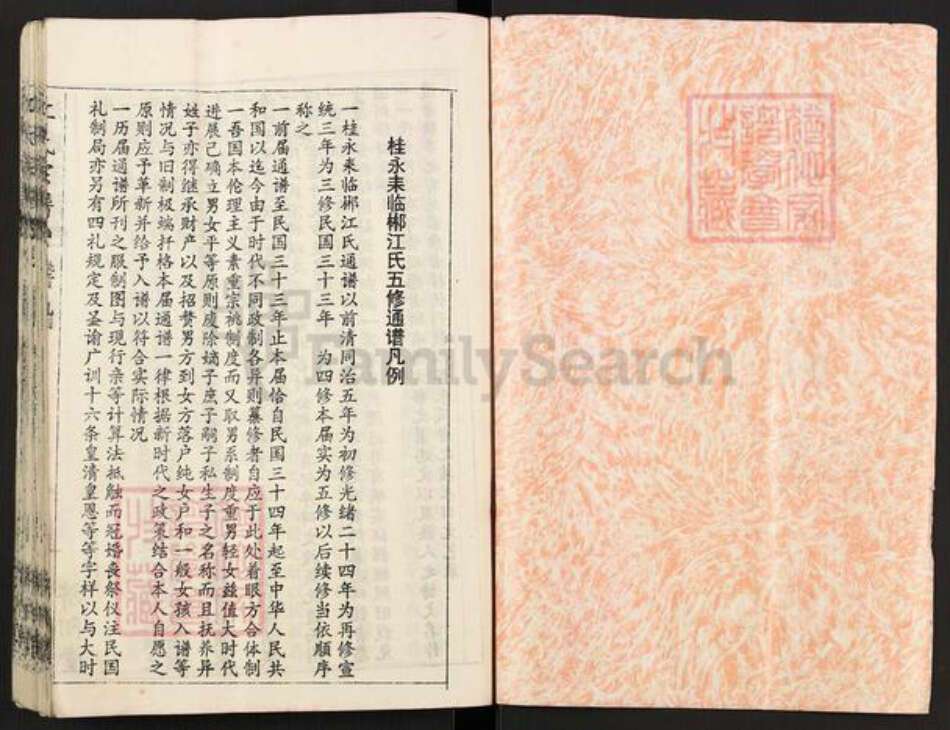 桂永耒临郴江氏五修通谱凡例
一桂永耒临郴江氏通谱以前清同治五年为初修光绪二十四年为再修宣
统三年为三修民国三十三年 为四修本届实为五修以后续修当依顺序
称之
一前届通谱至民国三十三年止本届恰自民国三十四年起至中华人民共
和国以迄今由于时代不同政制各异则纂修者自应于此处着眼方合体制
一吾国本伦理主义素重宗祧制度而又取男系制度重男轻女兹值大时代
进展己确立男女平等原则废除嫡子庶子嗣子私生子之名称而且抚养异
姓子亦得继承财产以及招赘男方到女方落户纯女户和一般女孩入谱等
情况与旧制极端扞格本届通谱一律根据新时代之政策结合本人自愿之
原则应予革新并给予入谱以符合实际情况
一历届通谱所刊之服制图与现行亲等计算法抵触而冠婚丧祭仪注民国
礼制局亦另有四礼规定及圣谕广训十六条皇清皇恩等等字样以与大时
FamilySearch